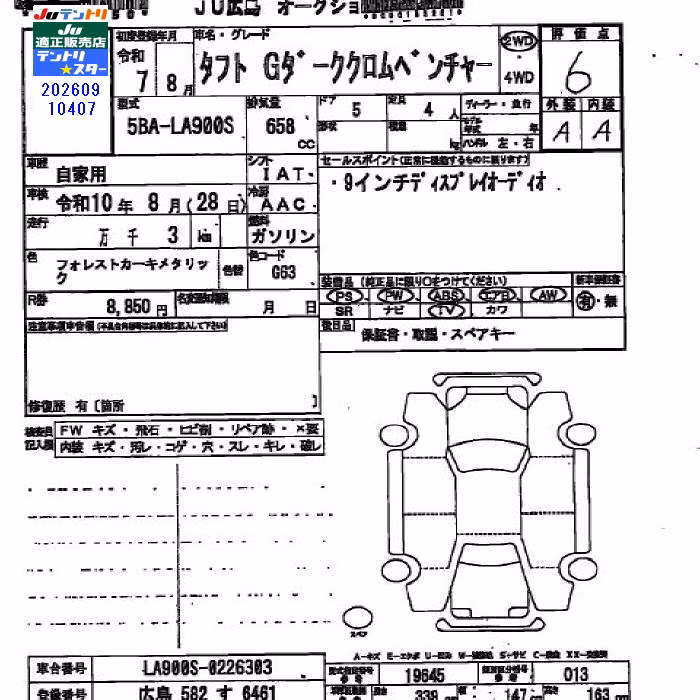 JU広島 オークショ
Juテントリ
JU
適正販売店
テントリ
★スター
202609
10407
初度登録年月
令和
7 8月
車名・グレード
タフト Gダーククロムベンチャー
2WD
4WD
評価点
6
型式
5BA-LA900S
排気量
658
cc
ドア 5
定員 4 人
形状
積量
kg
ディーラー・並行
モデル年式 年
ハンドル 左・右
外装 内装
A A
車歴
自家用
シフト
IAT
セールスポイント(正常に機能するものに限ります)
・9インチディスプレイオーディオ
車検
令和10年 8月(28日)
冷房
AAC
走行
万 千 3 km
燃料
ガソリン
色
フォレストカーキメタリック
色替
色コード
G63
装備品 (純正品に限り○をつけてください)
新車保証書
PS PW ABS エアB AW
有・無
SR ナビ TV カワ
R券
8,850 円
名変期限
月 日
後日品
保証書・取説・スペアキー
注意事項申告欄(不具合箇所は具体的に記入して下さい)
修復歴 有〔箇所 〕
検査員
記入欄
FW キズ・飛石・ヒビ割・リペア跡・×要
内装 キズ・汚レ・コゲ・穴・スレ・キレ・破レ
スペア
車台番号
LA900S-0226303
19645
013
登録番号
広島 582 す 6461
長さ 339 cm
147 cm
高さ 163 cm